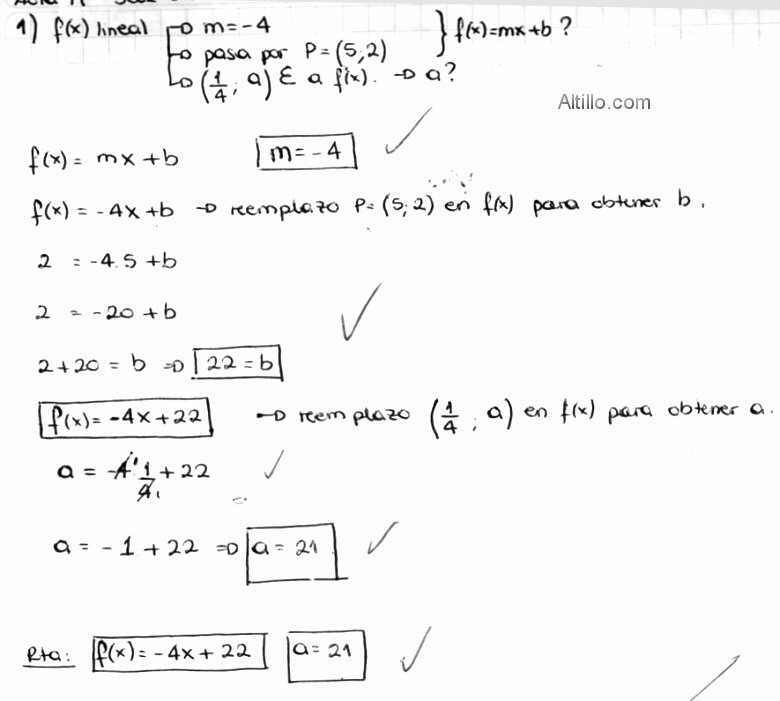 1) f(x) lineal m=-4 } f(x)=mx+b ?
pasa por P=(5,2)
(1/4; a) ∈ a f(x). → a?
Altillo.com
f(x) = mx+b m=-4 ✓
f(x) = -4x+b → reemplazo P=(5;2) en f(x) para obtener b.
2 = -4.5 +b
2 = -20 +b ✓
2+20 = b ⇒ 22 = b
f(x)= -4x+22 → reemplazo (1/4; a) en f(x) para obtener a.
a = -4 1/4 + 22 ✓
a = -1 + 22 ⇒ a = 21 ✓
Rta: f(x)= -4x + 22 a = 21 ✓